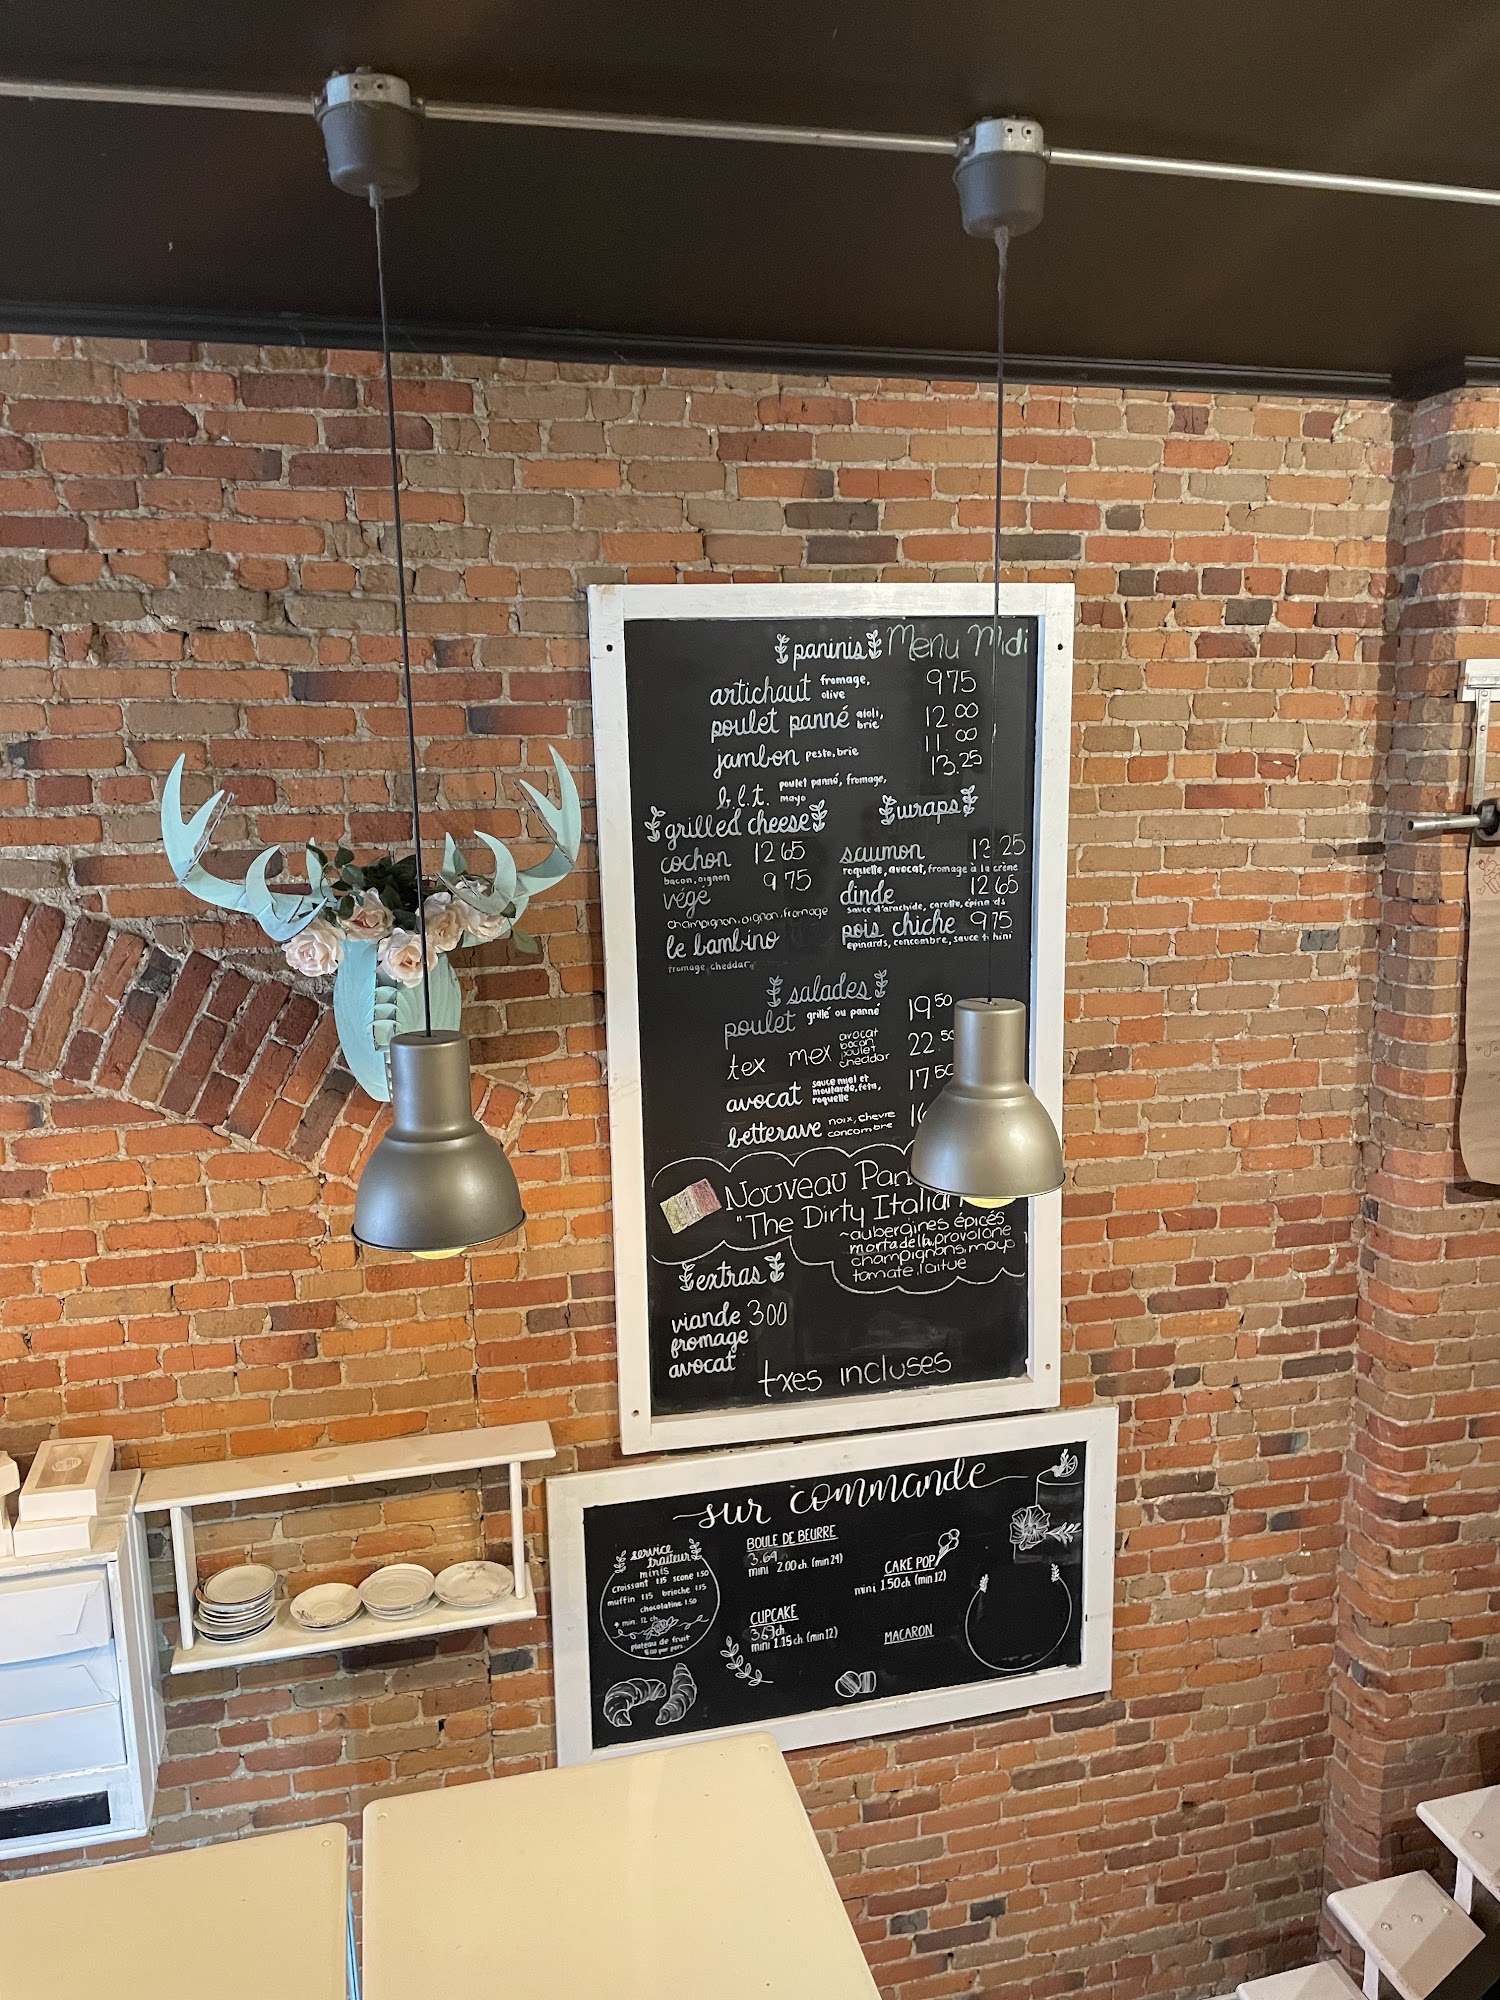 paninis Menu Midi
artichaut fromage, olive 9.75
poulet panné aioli, brie 12.00
jambon pesto, brie 11.00
b.l.t. poulet panné, fromage, mayo 13.25
grilled cheese
cochon 12.65
bacon, oignon
végé 9.75
champignon, oignon, fromage
le bambino
fromage cheddar
wraps
saumon 12.25
roquette, avocat, fromage à la crème
dinde 12.65
sauce d'arachide, carotte, épinards
pois chiche 9.75
épinards, concombre, sauce tahini
salades
poulet grillé ou panné 19.50
tex mex avocat bacon poulet cheddar 22.50
avocat sauce miel et moutarde, feta, roquette 17.50
betterave noix, chevre concombre
Nouveau
"The Dirty Italian
~aubergines épicés
mortadella, provolone
champignons, mayo
tomate, laitue
extras
viande 3.00
fromage
avocat
txes incluses
sur commande
service
traiteur
minis
croissant 1.15 scone 1.50
muffin 1.15 brioche 1.15
chocolatine 1.50
+ min. 12 ch
plateau de fruit
BOULE DE BEURRE
3.64
mini 2.00 ch (min 24)
CUPCAKE
3.67ch
mini 1.15 ch (min 12)
CAKE POP
mini 1.50 ch (min 12)
MACARON